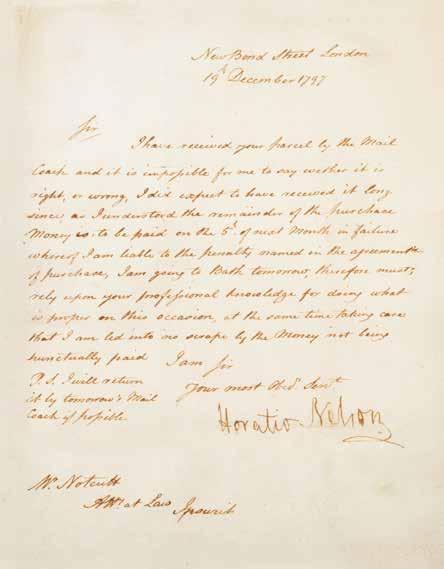 New Bond Street London
19th December 1797
Sir
I have received your parcel by the Mail
Coach and it is impossible for me to say wether it is
right, or wrong, I did expect to have received it long
since, as I understood the remainder of the purchase
Money is to be paid on the 5th of next Month in failure
whereof I am leable to the penalty named in the agreemts
of purchase, I am going to Bath tomorrow, therefore must,
rely upon your professional knowledge for doing what
is proper on this occasion, at the same time taking care
that I am led into no scrape by the Money not being
punctually paid
I am Sir
P.S. I will return
it by tomorrow's Mail
Coach if possible
your most Obed. Servt
Horatio Nelson
Mr. Notcutt
Atty. at Law Ipswich